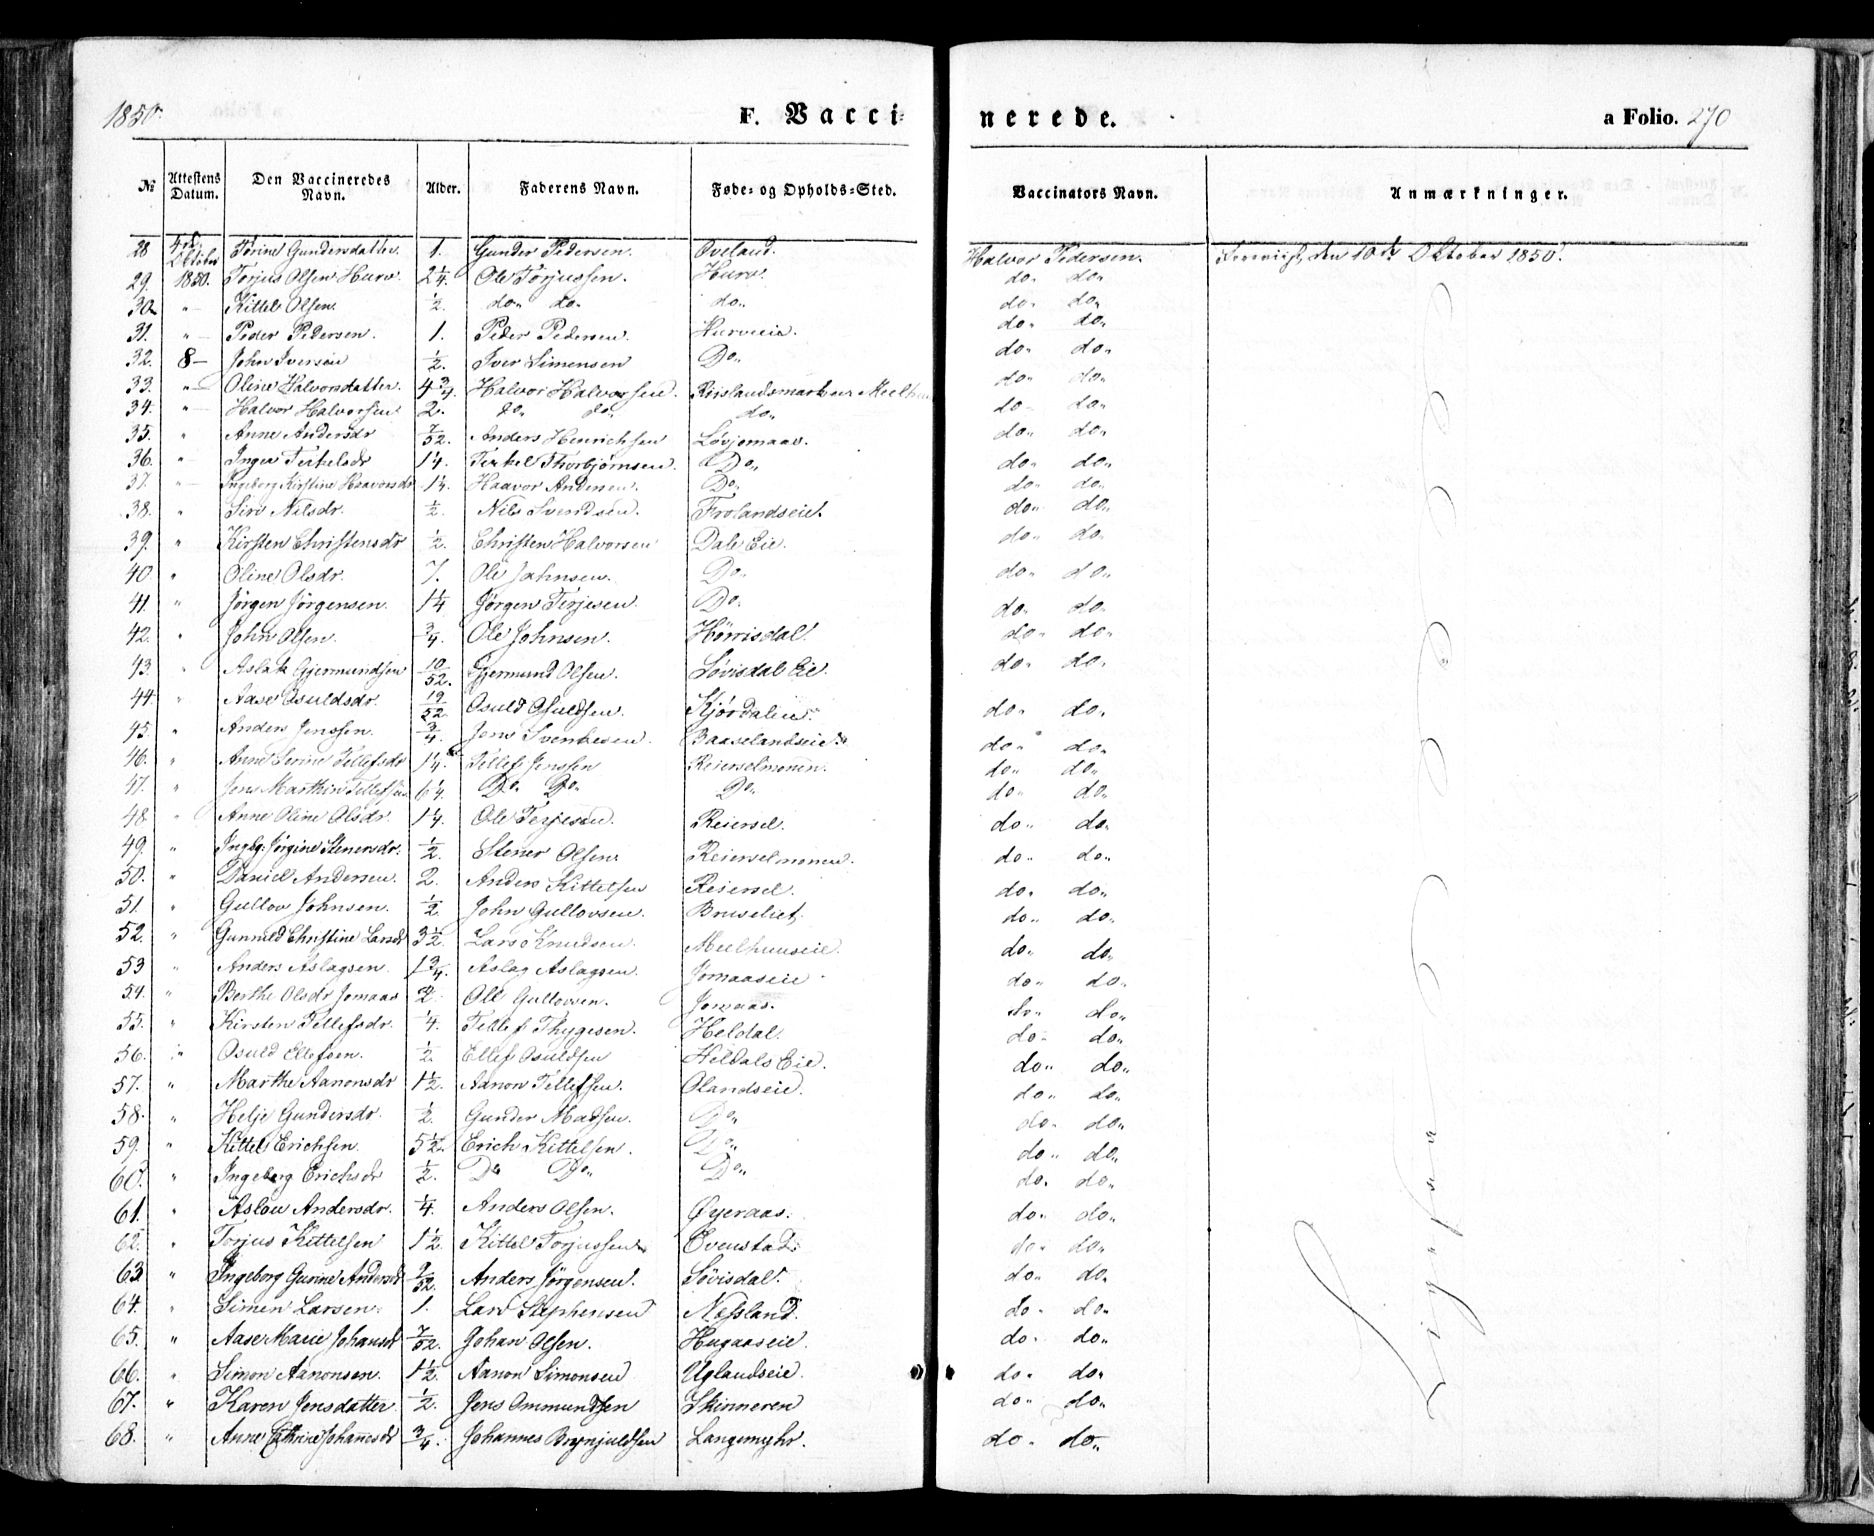 1850.
F. Vacci-
nerede.
a Folio. 270
№ Attestens Datum. Den Vaccineredes Navn. Alder. Faderens Navn. Føde- og Opholds-Sted. Vaccinators Navn. Anmærkninger.
28 4de Oktober Torine Gundersdatter. 1. Gunder Pedersen. Oveland. Halvor Pedersen. Foreviist den 10de Oktober 1850.
29. 1850. Torjus Olsen Hurv. 2¼ Ole Torjussen. Hurv. do. do.
30. " Kittel Olsen. ½. do. do. do. do. do.
31. " Peder Pedersen. 1. Peder Pedersen. Hurveeie. do. do.
32. 8 – John Iversen ½. Iver Simensen Do. do. do.
33. " Oline Halvorsdatter. 4¾. Halvor Halvorsen. do. do.
34. " Halvor Halvorsen 2. do. do. do. do. do.
35. " Anne Andersdr 7/52. Anders Henrichsen Løvjomaas. do. do.
36. " Inger Terkelsdr 1¼. Terkel Thorbjørnsen. Do. do. do.
37. " Ingeborg Kirstine Haavorsdr 1¼. Haavor Andersen. Do. do. do.
38. " Siri Nilsdr. ½. Nils Svendsen. Frolandseie. do. do.
39. " Kirsten Christensdr ½. Christen Halvorsen Dale Eie. do. do.
40. " Oline Olsdr. 7. Ole Johnsen. Do. do. do.
41. " Jörgen Jörgensen. 1¼ Jørgen Terjesen. Do. do. do.
42. " John Olsen. ¾. Ole Johnsen. Hørrisdal. do. do.
43. " Aslak Gjermundsen 10/52. Gjermund Olsen. Løvisdal Eie. do. do.
44. " Aase Osuldsdr. 19/52. Osuld Osuldsen. Kjørdaleie. do. do.
45. " Anders Jenssen. ¾. Jens Svenkesen. Baaselandseie. do. do.
46. " Anne Serine Tellefsdr 1¼. Tellef Jenssen Reierselmonen. do. do.
47. " Jens Marthin Tellefsen 6¼. Do. Do. Do. do. do.
48. " Anne Oline Olsdr. 1¼. Ole Terjesen. Reiersel. do. do.
49. " Ingbg. Jørgine Stenersdr. ½. Stener Olsen. Reierselmonen. do. do.
50. " Daniel Andersen. 2. Anders Kittelsen Reiersel. do. do.
51. " Gullov Johnsen. ½. John Gullovsen. Bruseliet. do. do.
52. " Gunnild Christine Larsdr 3½. Lars Knudsen. Meelhuuseie. do. do.
53 " Anders Aslagsen. 1¾. Aslag Aslagsen. Jomaaseie do. do.
54. " Berthe Olsdr Jomaas 2. Ole Gullovsen. Jomaas. do. do.
55. " Kirsten Tellefsdr. ¼. Tellef Thygesen. Heldal. do. do.
56. " Osuld Ellefsen. ½. Ellef Osuldsen Heldals Eie. do. do.
57. " Marthe Aanonsdr 1½. Aanon Tellefsen. Olandseie. do. do.
58. " Helje Gundersdr. ½. Gunder Madsen. Do. do. do.
59. " Kittel Erichsen. 5½. Erich Kittelsen. Do. do. do.
60. " Ingeborg Erichsdr ½. Do Do. Do. do. do.
61. " Aslou Andersdr. ¼. Anders Olsen. Øyeraas. do. do.
62. " Torjus Kittelsen 1½. Kittel Torjussen. Ovenstad. do. do.
63. " Ingeborg Gurine Andersdr 9/52. Anders Jørgensen. Løvisdal. do. do.
64. " Simen Larsen. 1. Lars Stephensen Næsland. do. do.
65. " Aase Marie Johansdr 7/52. Johan Olsen. Hugaaseie. do. do.
66. " Simon Aanonsen. 1½. Aanon Simonsen Uglandseie. do. do.
67. " Karen Jensdatter ½. Jens Ommundsen Skinneren do. do.
68. " Anne Cathrine Johannesdr ¾. Johannes Brynjuldsen Langemyhr. do. do.